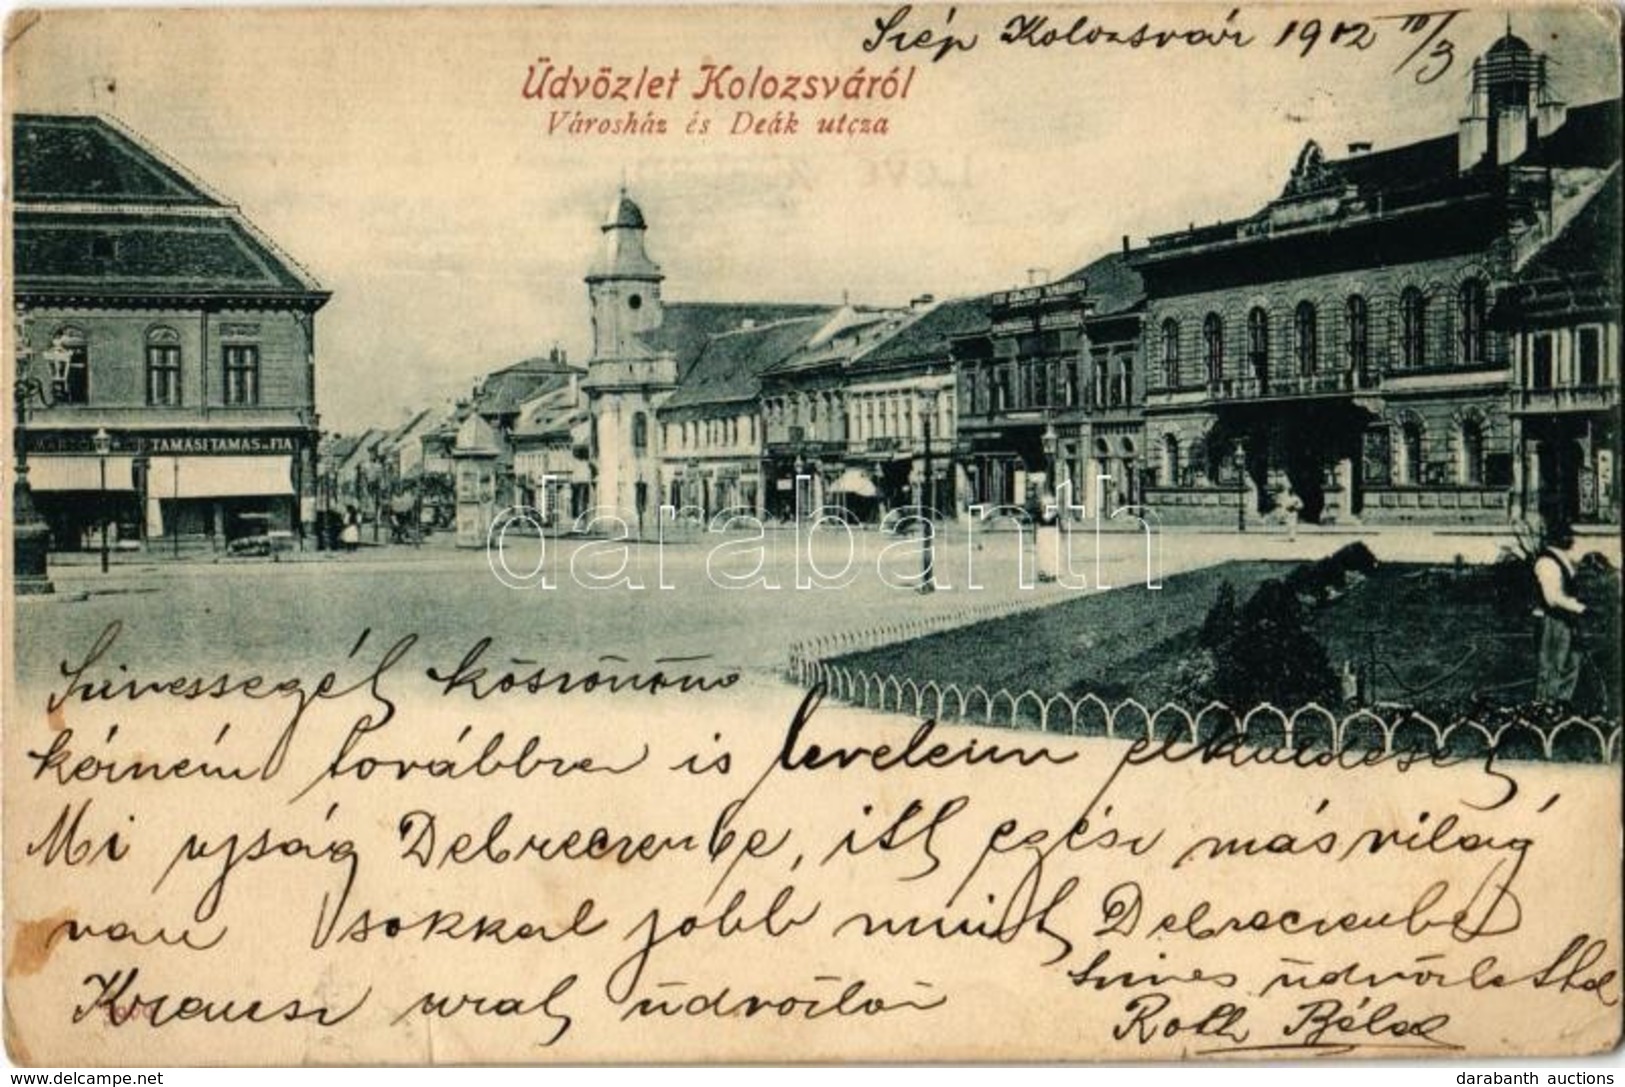 Szép Kolozsvár 1902 10/3
Üdvözlet Kolozsváról
Városház és Deák utcza
TAMÁSI TAMÁS és FIA
darabanth
Szivességét köszönöm
kérném továbbra is leveleim elküldését
Mi ujság Debreczenbe, itt egész más világ
van sokkal jobb mint Debreczenbe
Krausz urat üdvözlöm
szives üdvözlettel
Roth Béla
www.delcampe.net
darabanth auctions